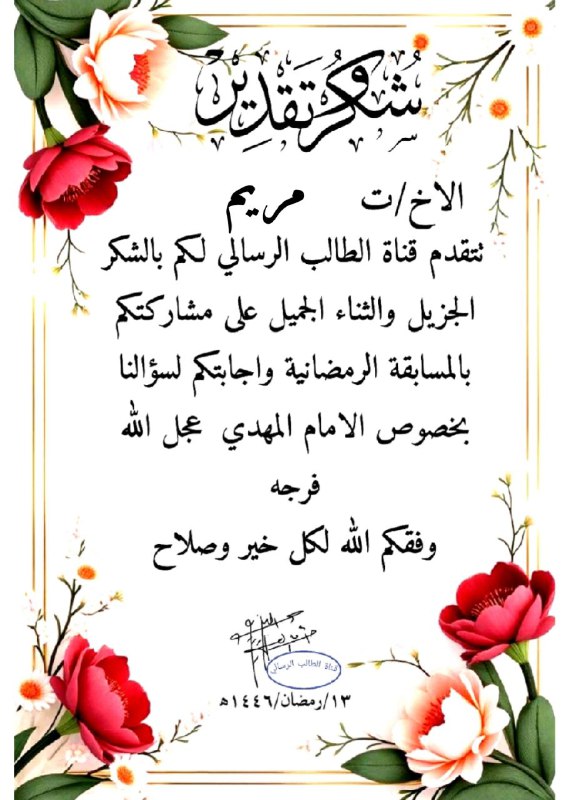 شكر وتقدير
الاخ/ت مريم
تتقدم قناة الطالب الرسالي لكم بالشكر
الجزيل والثناء الجميل على مشاركتكم
بالمسابقة الرمضانية واجابتكم لسؤالنا
بخصوص الامام المهدي عجل الله
فرجه
وفقكم الله لكل خير وصلاح
قناة الطالب الرسالي
١٣/رمضان/١٤٤٦ه